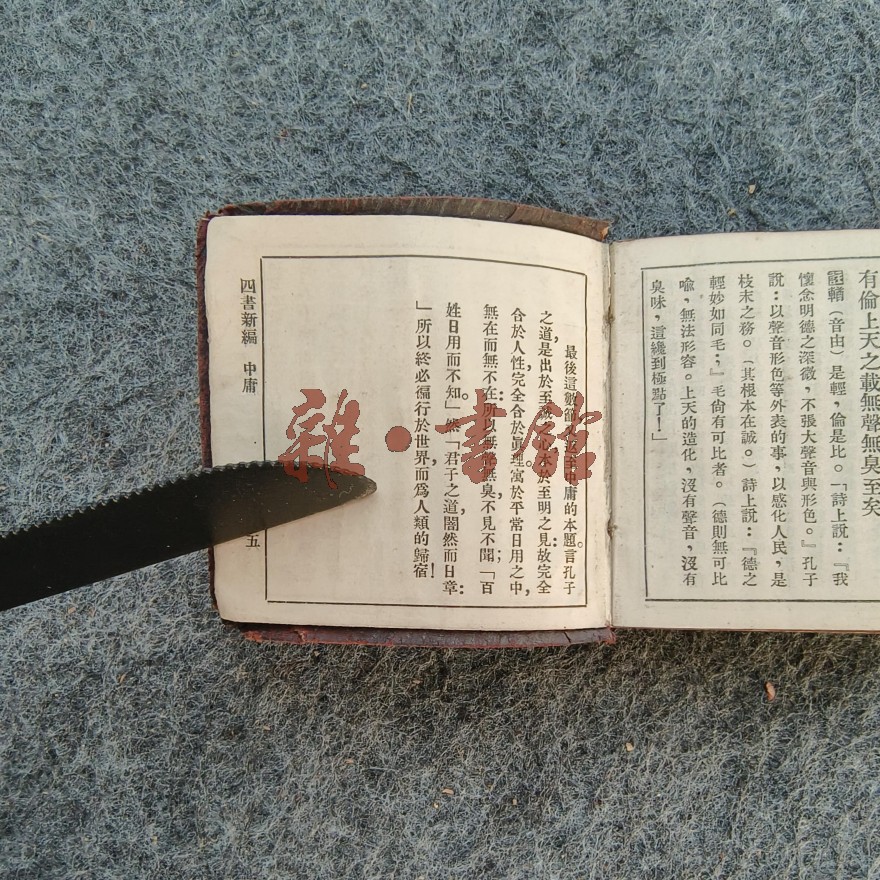 有倫上天之載無聲無臭至矣
輶（音由）是輕，倫是比。「詩上說：『我
懷念明德之深微，不張大聲音與形色。』孔子
說：以聲音形色等外表的事，以感化人民，是
枝末之務。（其根本在誠。）詩上說：『德之
輕妙如同毛；』毛尙有可比者。（德則無可比
喩，無法形容。上天的造化，沒有聲音，沒有
臭味，這纔到極點了！」
最後這數節 中庸的本題。言孔子
之道，是出於至誠 本於至明之見：故完全
合於人性，完全合於眞理。寓於平常日用之中，
無在而無不在：所以無聲無臭，不見不聞；「百
姓日用而不知。」然「君子之道，闇然而日章：
」所以終必徧行於世界，而爲人類的歸宿！
四書新編 中庸
五
雜·書館